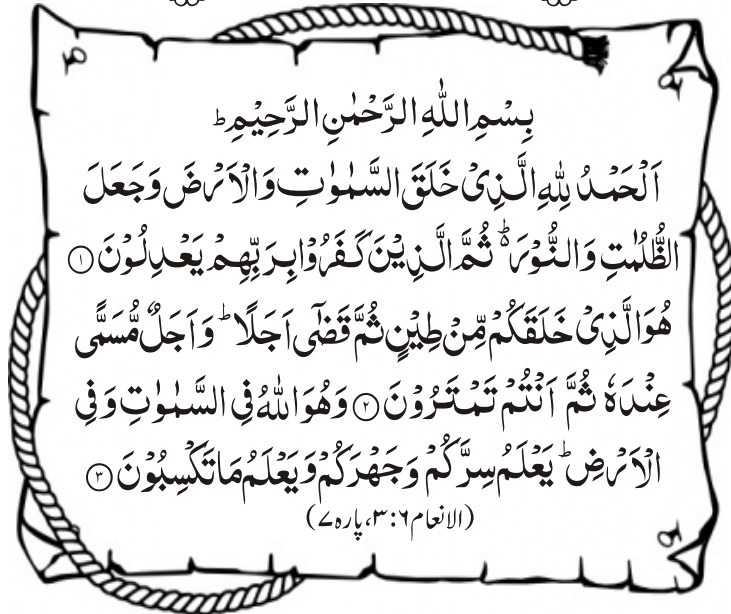 بِسْمِ اللهِ الرَّحْمٰنِ الرَّحِيْمِ ط
اَلْحَمْدُ لِلّٰهِ الَّذِىْ خَلَقَ السَّمٰوٰتِ وَالْاَرْضَ وَجَعَلَ
الظُّلُمٰتِ وَالنُّوْرَ ۬ؕ ثُمَّ الَّذِيْنَ كَفَرُوْا بِرَبِّهِمْ يَعْدِلُوْنَ ①
هُوَ الَّذِىْ خَلَقَكُمْ مِّنْ طِيْنٍ ثُمَّ قَضٰۤى اَجَلًا ؕ وَاَجَلٌ مُّسَمًّى
عِنْدَهٗ ثُمَّ اَنْتُمْ تَمْتَرُوْنَ ② وَهُوَ اللهُ فِى السَّمٰوٰتِ وَفِى
الْاَرْضِ ؕ يَعْلَمُ سِرَّكُمْ وَجَهْرَكُمْ وَيَعْلَمُ مَا تَكْسِبُوْنَ ③
(الانعام ۶:۳، پارہ ۷)